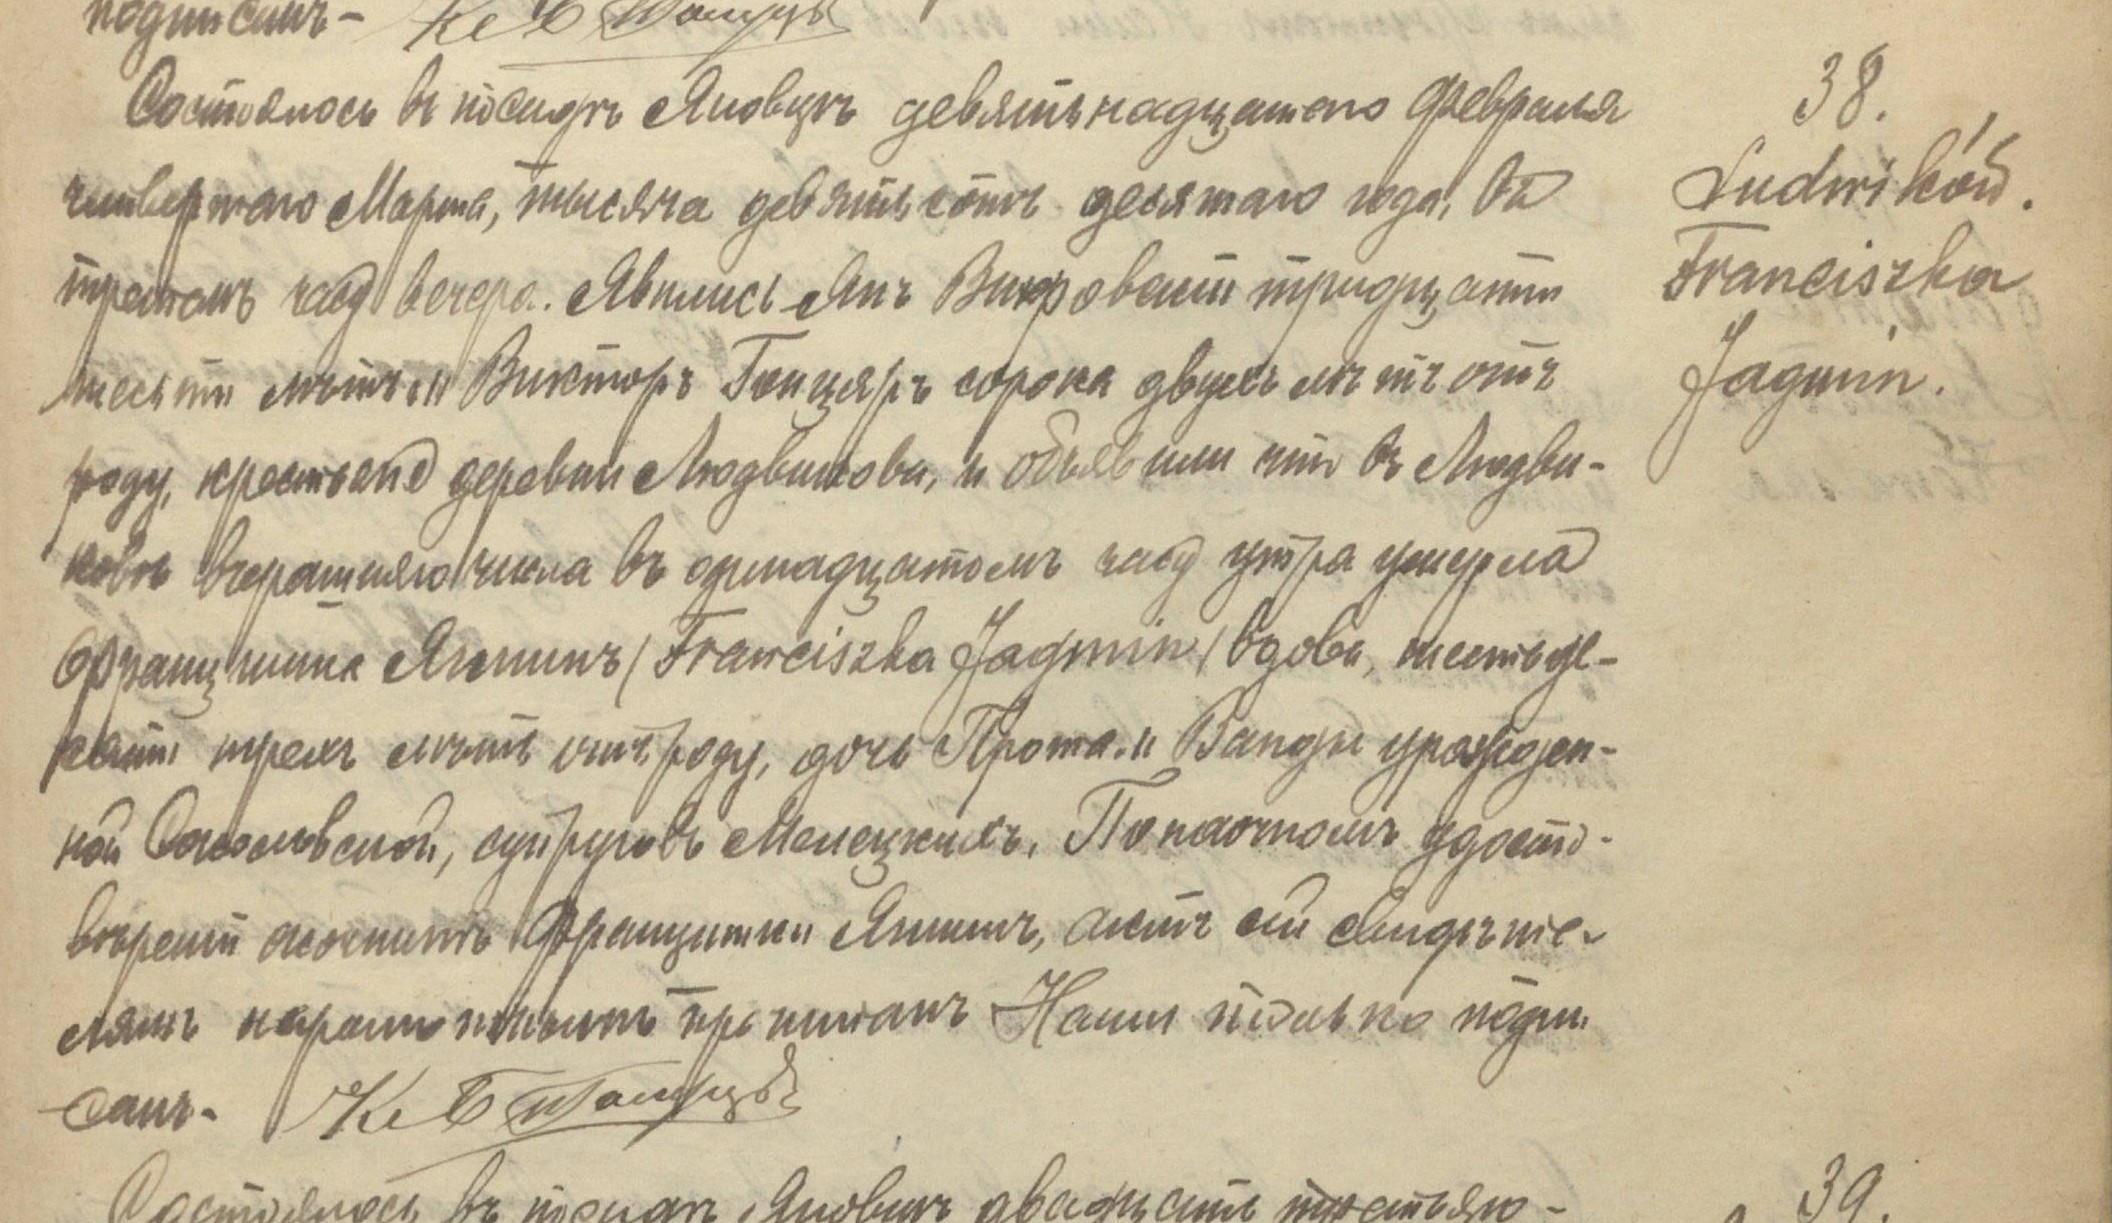 подписанъ-
Состоялось въ посадѣ Яновцѣ девятьнадцатаго Февраля
четвертаго Марта, тысяча девятьсотъ десятаго года, въ
третьемъ часу вечера. Явились Янъ тридцати
шести лѣтъ и Викторъ Гонцяръ сорока двухъ лѣтъ отъ
роду, крестьяне деревни Людвикова, и объявили что въ Людви-
ковѣ вчерашняго числа въ одинадцатомъ часу утра умерла
Францишка Ягминъ (Franciszka Jagmin) вдова, шестьде-
сяти трехъ лѣтъ отъ роду, дочь Прота и Ванды урожден-
ной Соколовской, супруговъ Мелецкихъ. По наочномъ удосто-
вѣреніи о кончинѣ Францишки Ягминъ, актъ сей свидѣте-
лямъ неграмотнымъ прочитанъ Нами только подпи-
санъ-
Состоялось въ посадѣ Яновцѣ двадцать третьяго-
38.
Ludwików.
Franciszka
Jagmin.
39.